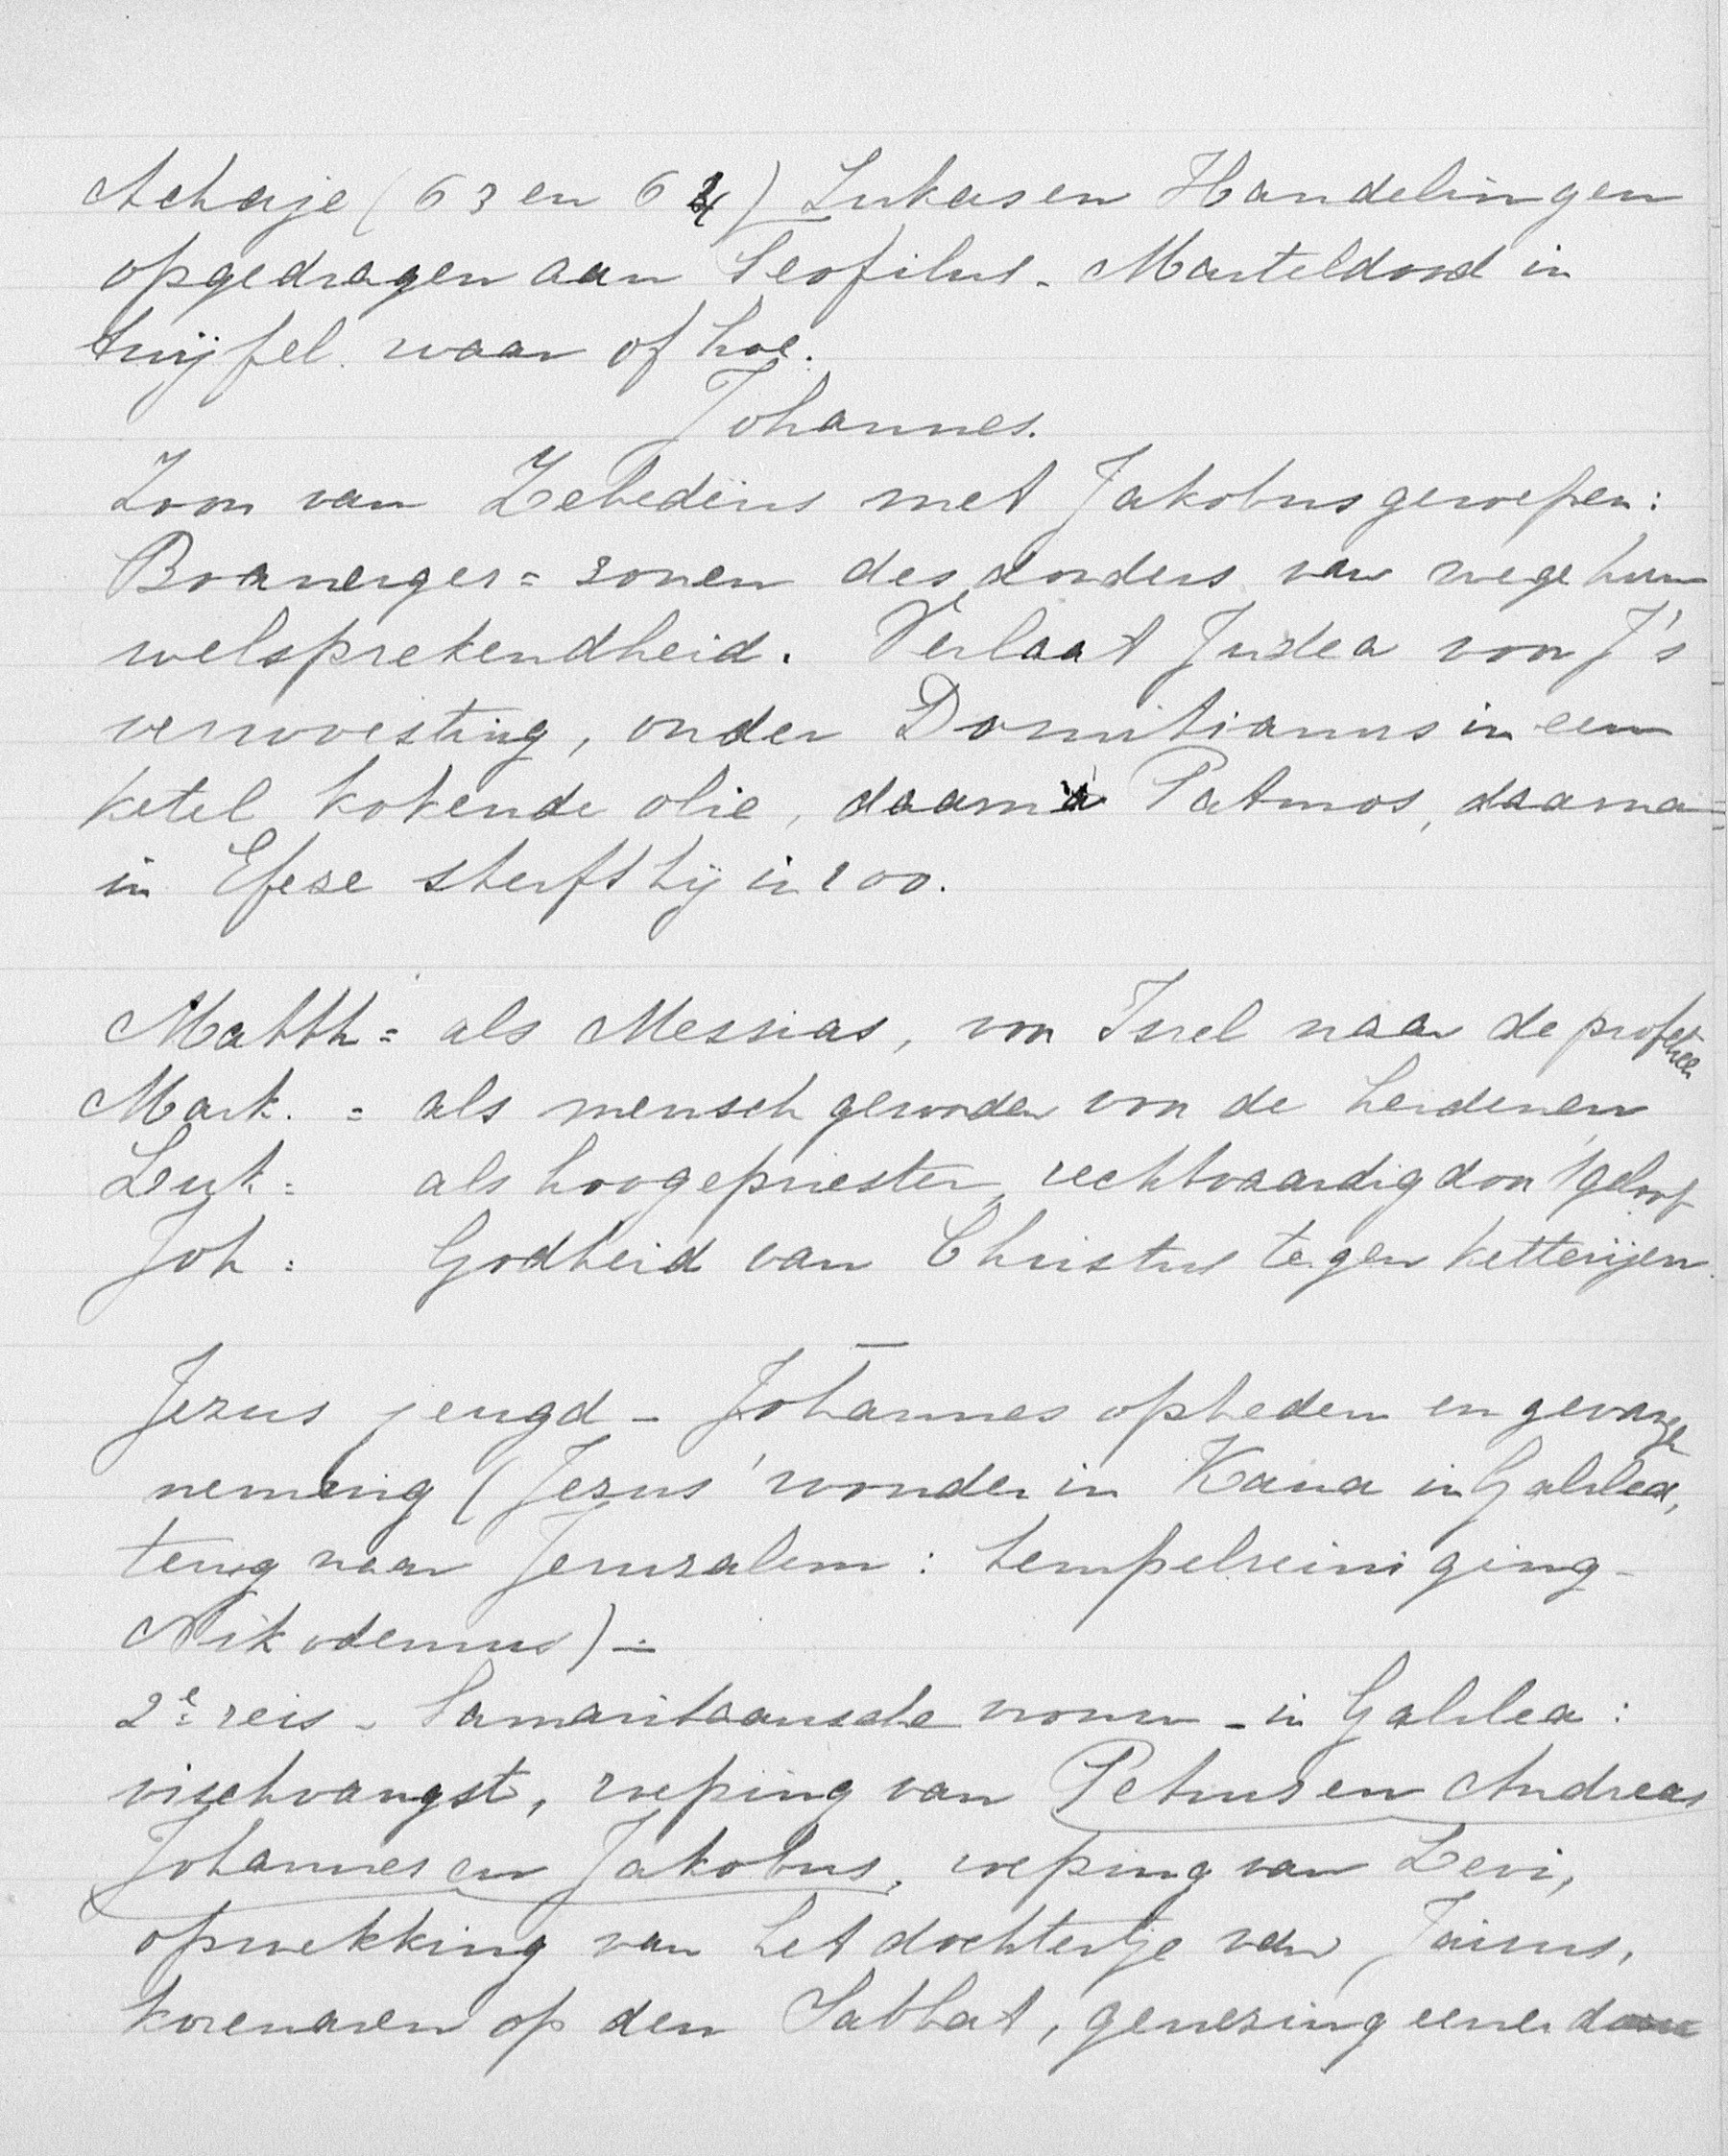 Achaje (63 en 64) Lukas en Handelingen
opgedragen aan Teofilus. Marteldood in
twijfel waar of hoe.
Johannes.
Zoon van Zebedeüs met Jakobus geroepen:
Boanerges = zonen des donders van wege hun
welsprekendheid. Verlaat Judea voor J's
verwoesting, onder Domitianus in een
ketel kokende olie, daarna Patmos, daarna
in Efeze sterft hij in 100.
Matth = als Messias, voor Isrel naar de profetieën
Mark. = als mensch geworden voor de heidenen
Luk = als hoogepriester, rechtvaardig door 't geloof
Joh = Godheid van Christus tegen ketterijen.
Jezus jeugd - Johannes optreden en gevangen
neming (Jezus' wonder in Kana in Galilea,
terug naar Jeruzalem: tempelreiniging -
Nikodemus) -
2e reis - Samaritaansche vrouw - in Galilea:
vischvangst, roeping van Petrus en Andreas
Johannes en Jakobus, roeping van Levi,
opwekking van het dochtertje van Jaïrus,
korenaren op den Sabbat, genezing eener